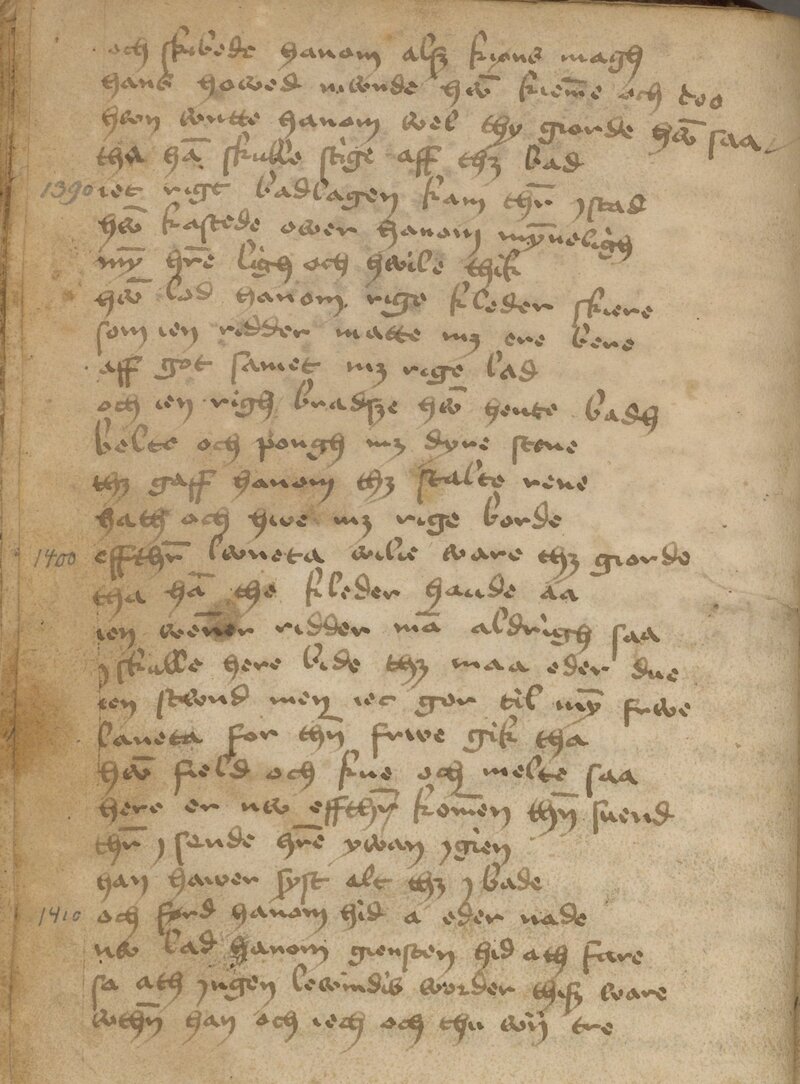 och skibede hanom alss krons magh
hans howed vwnde hwn̄ kiem̄e och too
hwn wiitte hanom wel thy giorde hwn̄ saa
tha hā skulle stige aff thz bad
1390 iet rigt badlagen kam thr̄ ȷ stad
hwn̄ kastede ower hanom myn̄neligh
myn̄ hr̄e ligh och hwile thik
hwn̄ lod hanom rige kleder skiere
som ien ridder matte mz ere bere
aff got samet mz rige lad
och ien righ bradsze hwn̄ hente badh
belte och pongh mz dyre stene
thz gaff hanom thz stalte rene
hath och hwe mz rige borde
1400 effthr̄ lwneta wilie ware thz giorde
tha hā the kleder hande aa
ien wen̄er ridder mā aldrigh saa
ȷ skulle here bide thz maa eder due
ien stwnd men iec gor til myn̄ frwe
laneta for thn̄ frwe gik tha
hwn̄ field och kne och melte saa
here er nw effthr̄ kom̄en thn̄ suend
thr̄ ȷ sende hr̄e ywan ȷgien
han hawer syst alt thz ȷ bade
1410 och ford hanom hid a eder nade
nw lad hanom giensten hid ath fare
sa ath ȷngen lewindis worder thiss ware
wthn̄ han och iech och thu wij tre